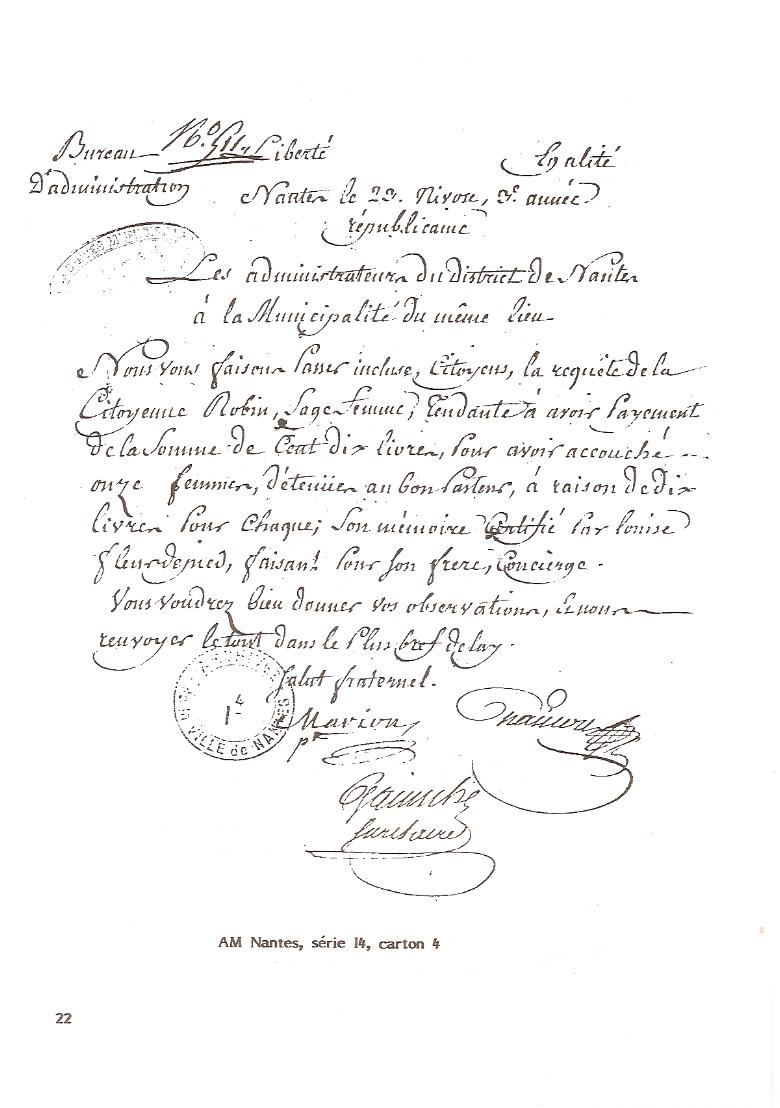 Bureau Liberté Egalité
D'administration Nantes le 23. Nivose, 3e. année
républicaine
Les administrateurs du district de Nantes
à la Municipalité du même lieu
Nous vous faisons passer incluse, Citoyens, la requête de la
Citoyenne Robin, Sage Femme, Tendante à avoir payement
de la Somme de Cent dix livres, pour avoir accouché
onze femmes, détenües au bon Pasteur, à raison de dix
livres pour chaque; Son mémoire Certifié par louise
fleurdepied, faisant pour son frere, Concierge.
Vous voudrez bien donner vos observations, & nous
renvoyer le tout dans le plus bref delay.
Salut fraternel.
ARCHIVES
VILLE de NANTES
I 4
Marion,
pt
Secretaire
AM Nantes, série I4, carton 4
22